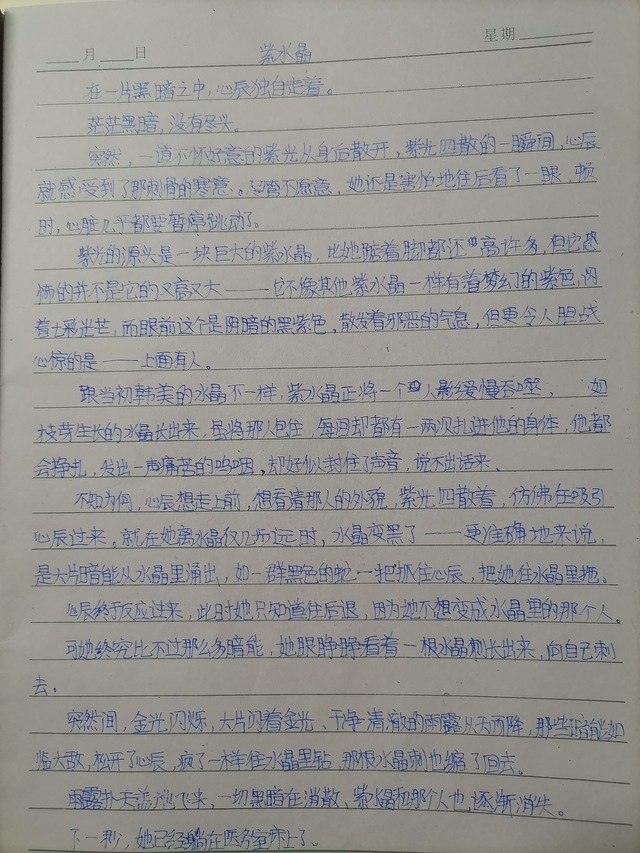 星期
月 日 紫水晶
在一片黑暗之中，心辰独自走着。
茫茫黑暗，没有尽头。
突然，一道不怀好意的紫光从身后散开，紫光四散的一瞬间，心辰
就感受到了那刺骨的寒意。尽管不愿意，她还是害怕地往后看了一眼，顿
时，心脏几乎都要暂停跳动了。
紫光的源头是一块巨大的紫水晶，比她踮着脚都还高许多，但它恐
怖的并不是它的又高又大——它不像其他紫水晶一样有着梦幻的紫色，闪
着七彩光芒，而眼前这个是阴暗的黑紫色，散发着邪恶的气息，但更令人胆战
心惊的是——上面有人。
跟当初韩美的水晶不一样，紫水晶正将一个人影缓慢吞噬， 如
枝芽生长的水晶长出来，虽将那人包住，每回却都有一两次扎进他的身体，他都
会挣扎，发出一声痛苦的呜咽，却好似封住了声音，说不出话来。
不知为何，心辰想走上前，想看清那人的外貌，紫光四散着，仿佛在吸引
心辰过来。就在她离水晶仅几步远时，水晶变黑了——更准确地来说，
是大片暗能从水晶里涌出，如一群黑色的蛇一把抓住心辰，把她往水晶里拖。
心辰终于反应过来，此时她只知道往后退，因为她不想变成水晶里的那个人。
可她终究比不过那么多暗能，她眼睁睁看着一根水晶刺长出来，向自己刺
去。
突然间，金光闪烁，大片闪着金光、干净清澈的雨露从天而降，那些暗能如
临大敌，松开了心辰，疯了一样往水晶里钻，那根水晶刺也缩了回去。
雨露扑天盖地飞来，一切黑暗在消散，紫水晶和那个人也逐渐消失。
下一秒，她已经躺在医务室床上了。